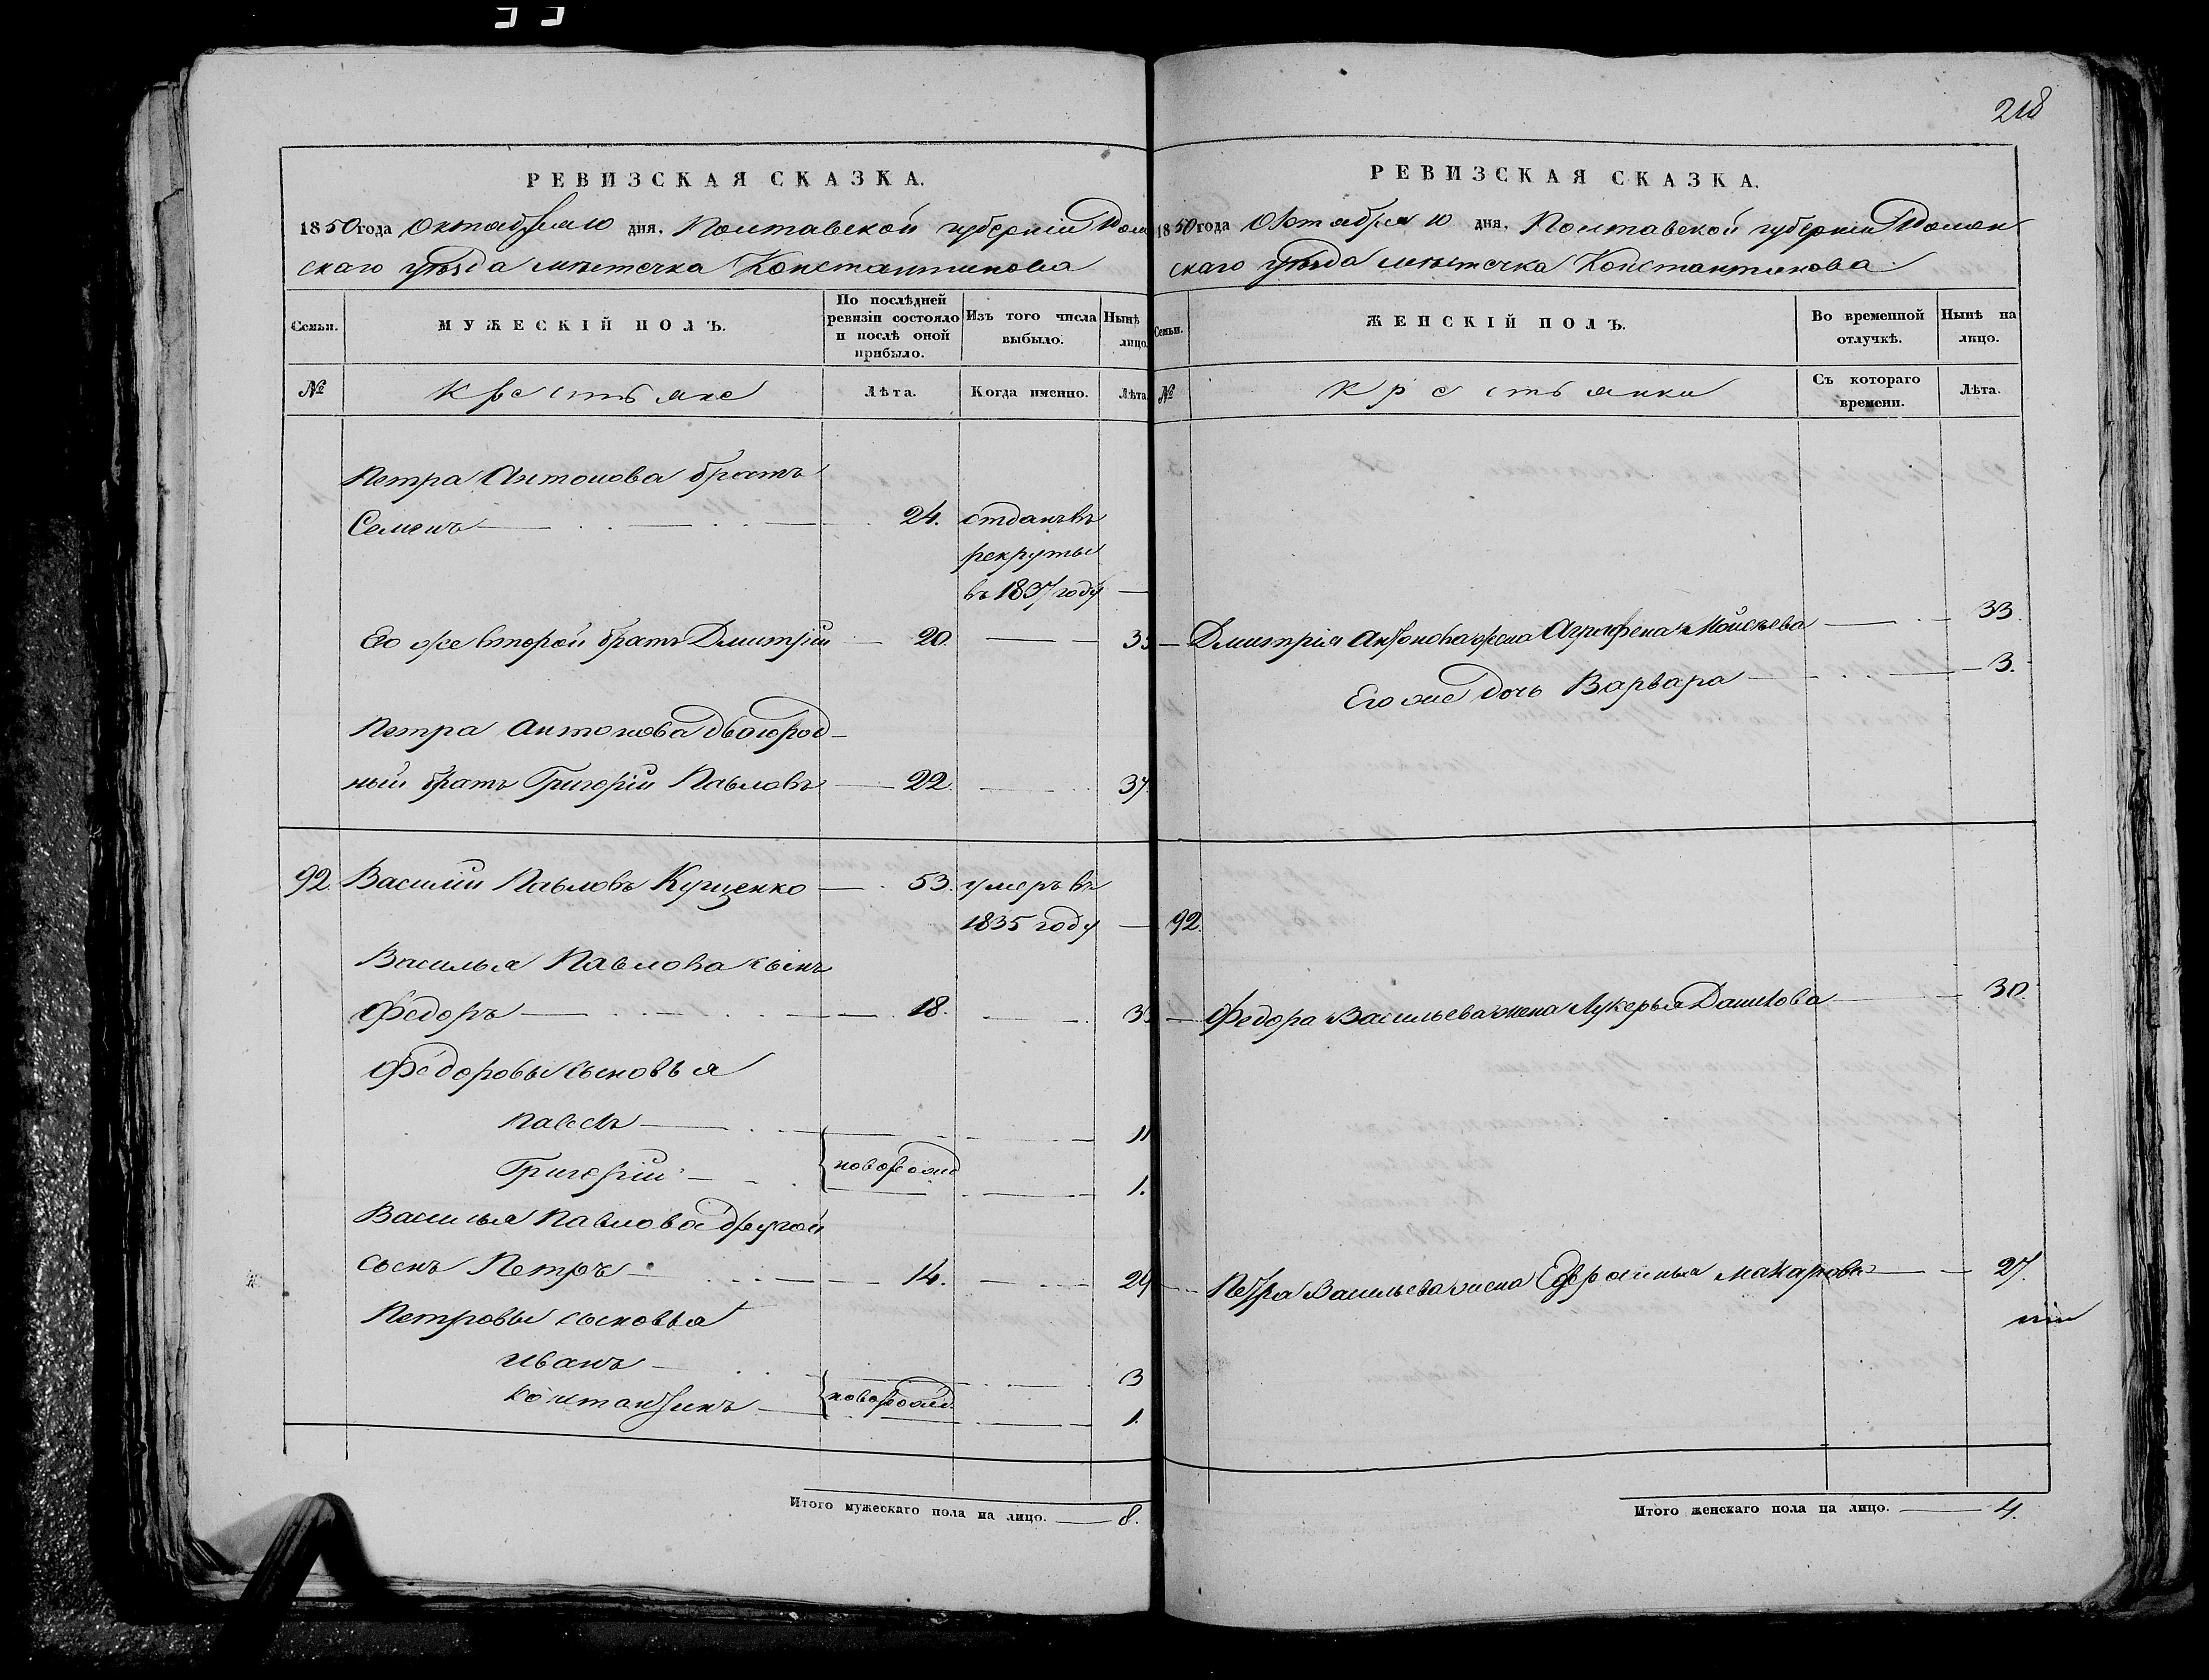 218
РЕВИЗСКАЯ СКАЗКА.
1850 года Октября 10 дня. Полтавской губерніи Ромен
скаго уѣзда мѣстечка Константинова
Семьи.
МУЖЕСКІЙ ПОЛЪ.
По послѣдней ревизіи состояло и послѣ оной прибыло.
Изъ того числа выбыло.
Нынѣ лицо.
№
Крестьяне
Лѣта.
Когда именно.
Лѣта
Петра Антонова братъ
Семенъ 24. отданъ въ
рекруты
въ 1837 году
Его же второй братъ Дмитрій 20.
Петра Антонова двоюрод-
ный братъ Григорій Павловъ 22. 37.
92. Василій Павловъ Куценко 53. умеръ въ
1835 году
Василья Павлова сынъ
Федоръ 18.
Федоровы сыновья
Павелъ 11
новорожд
Григорій 1.
Василья Павлова другой
сынъ Петръ 14.
Петровы сыновья
Иванъ 3
новорожд.
Константинъ 1.
Итого мужескаго пола на лицо. 8.
РЕВИЗСКАЯ СКАЗКА.
1850 года Октября 10 дня. Полтавской губерніи Ромен
скаго уѣзда мѣстечка Константинова
Семьи.
ЖЕНСКІЙ ПОЛЪ.
Во временной отлучкѣ.
Нынѣ на лицо.
№
Крестьянки
Съ котораго времени.
Лѣта.
Дмитрія Антонова жена Агрипена Мойсѣева 33.
Его же дочь Варвара 3.
92.
Федора Васильева жена Лукерья Данилова 30.
Петра Васильева жена Ефросинья Макарова 27.
Итого женскаго пола на лицо. 4.